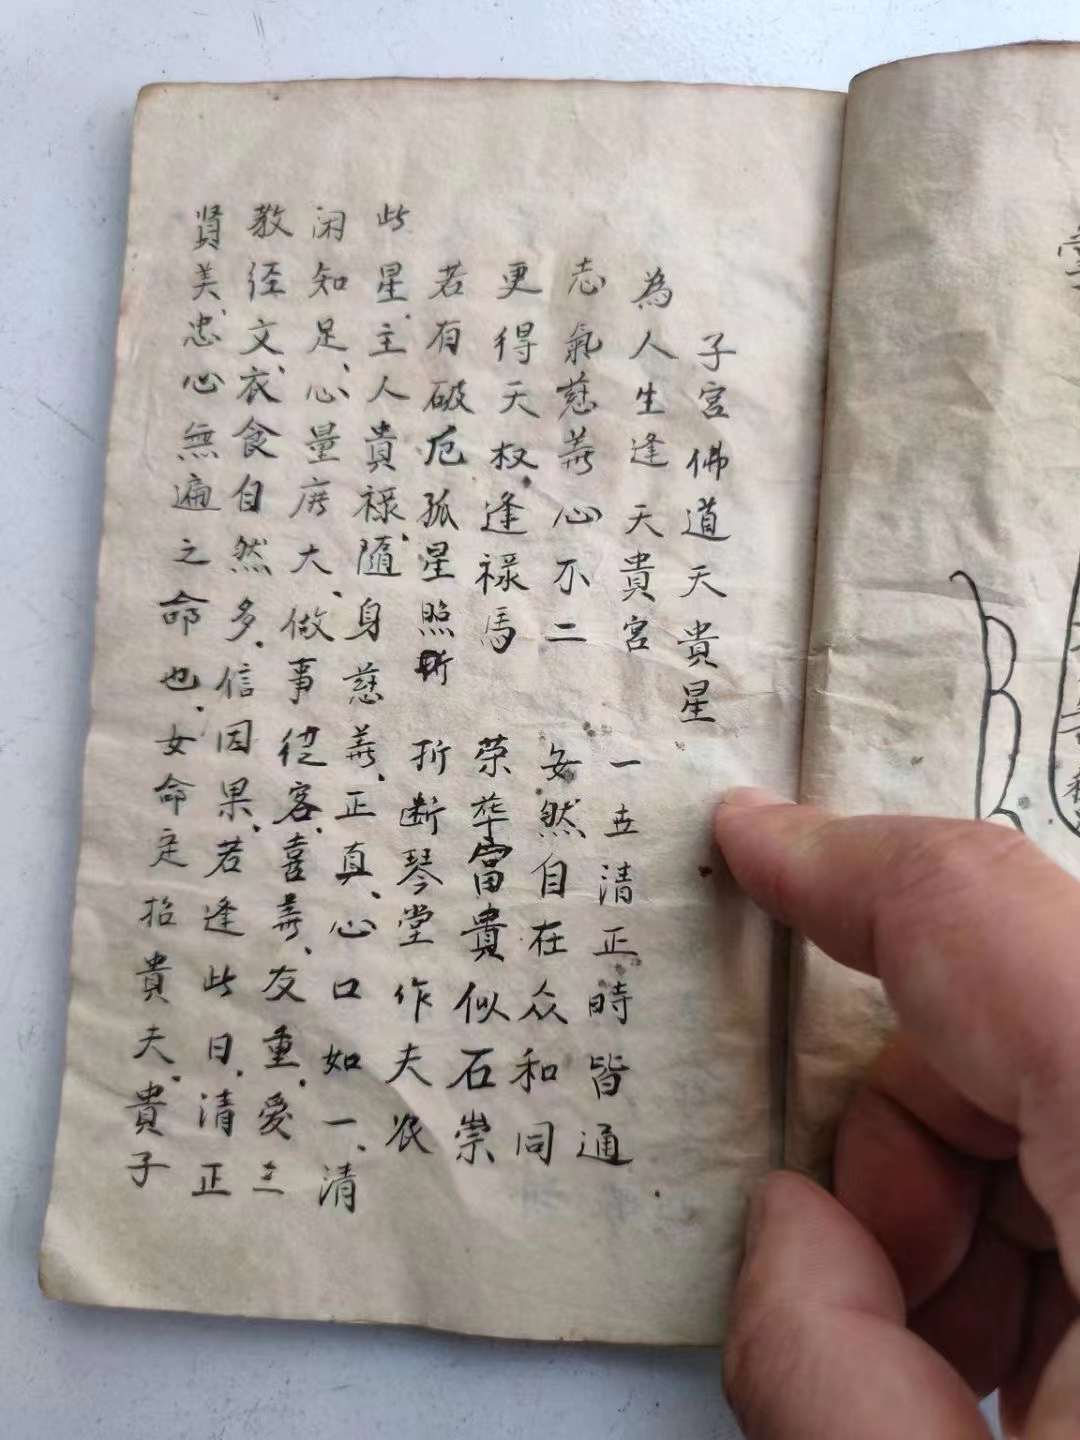 子宮佛道天貴星
為人生逢天貴宮 一世清正時皆通
志氣慈善心不二 安然自在众和同
更得天权逢禄馬 荣華富貴似石崇
若有破厄孤星照 折断琴堂作夫农
此星、主人貴禄、隨身慈善、正真、心口如一、清
闲知足、心量庅大、做事從客、喜善、友重、愛三
教径文、衣食自然多、信因果、若逢此日、清正
贤美、忠心無遍之命也、女命定招貴夫、貴子